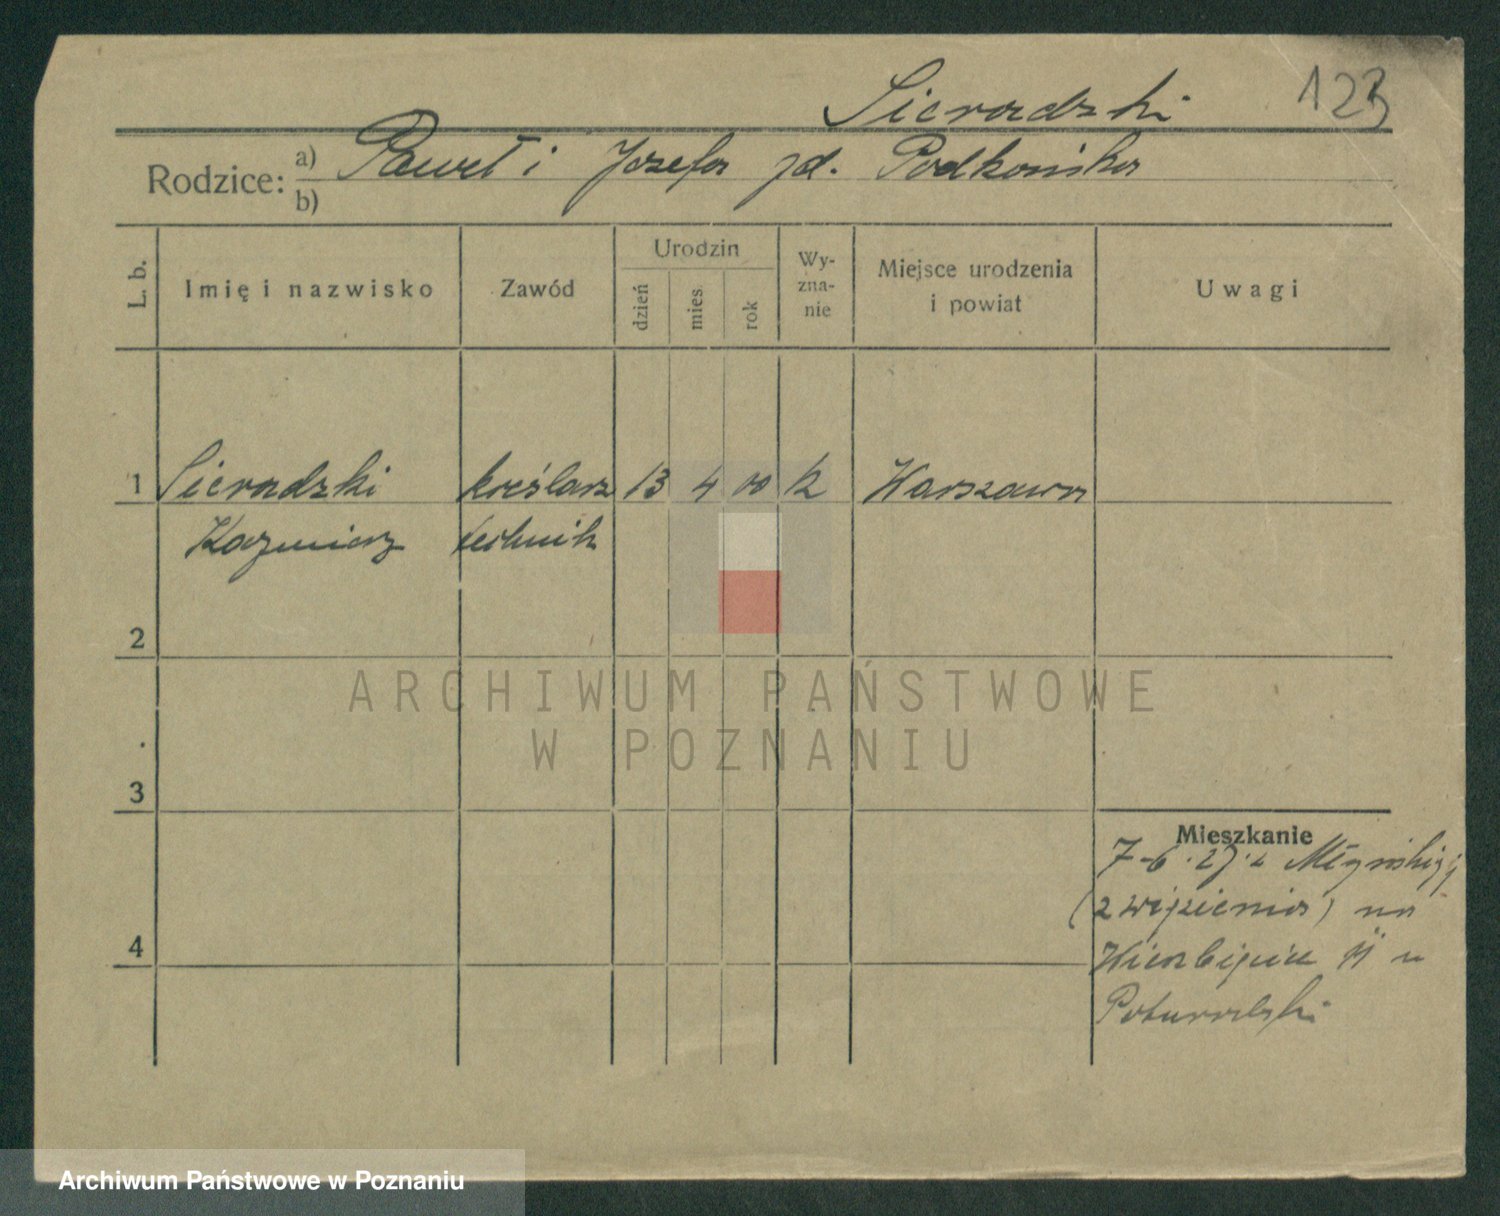 Sieradzki
123
Rodzice: a) Paweł i Józefa zd. Podkońska
b)
L. b.
Imię i nazwisko
Zawód
Urodzin
dzień
mies.
rok
Wy-
zna-
nie
Miejsce urodzenia
i powiat
Uwagi
1 Sieradzki kreślarz 13 4 00 k Warszawa
Kazimierz technik
2
3
4
Mieszkanie
7-6.27. z Młyńskiej
(z więzienia) na
Wierzbięcice 11 u
ARCHIWUM PAŃSTWOWE
W POZNANIU
Archiwum Państwowe w Poznaniu